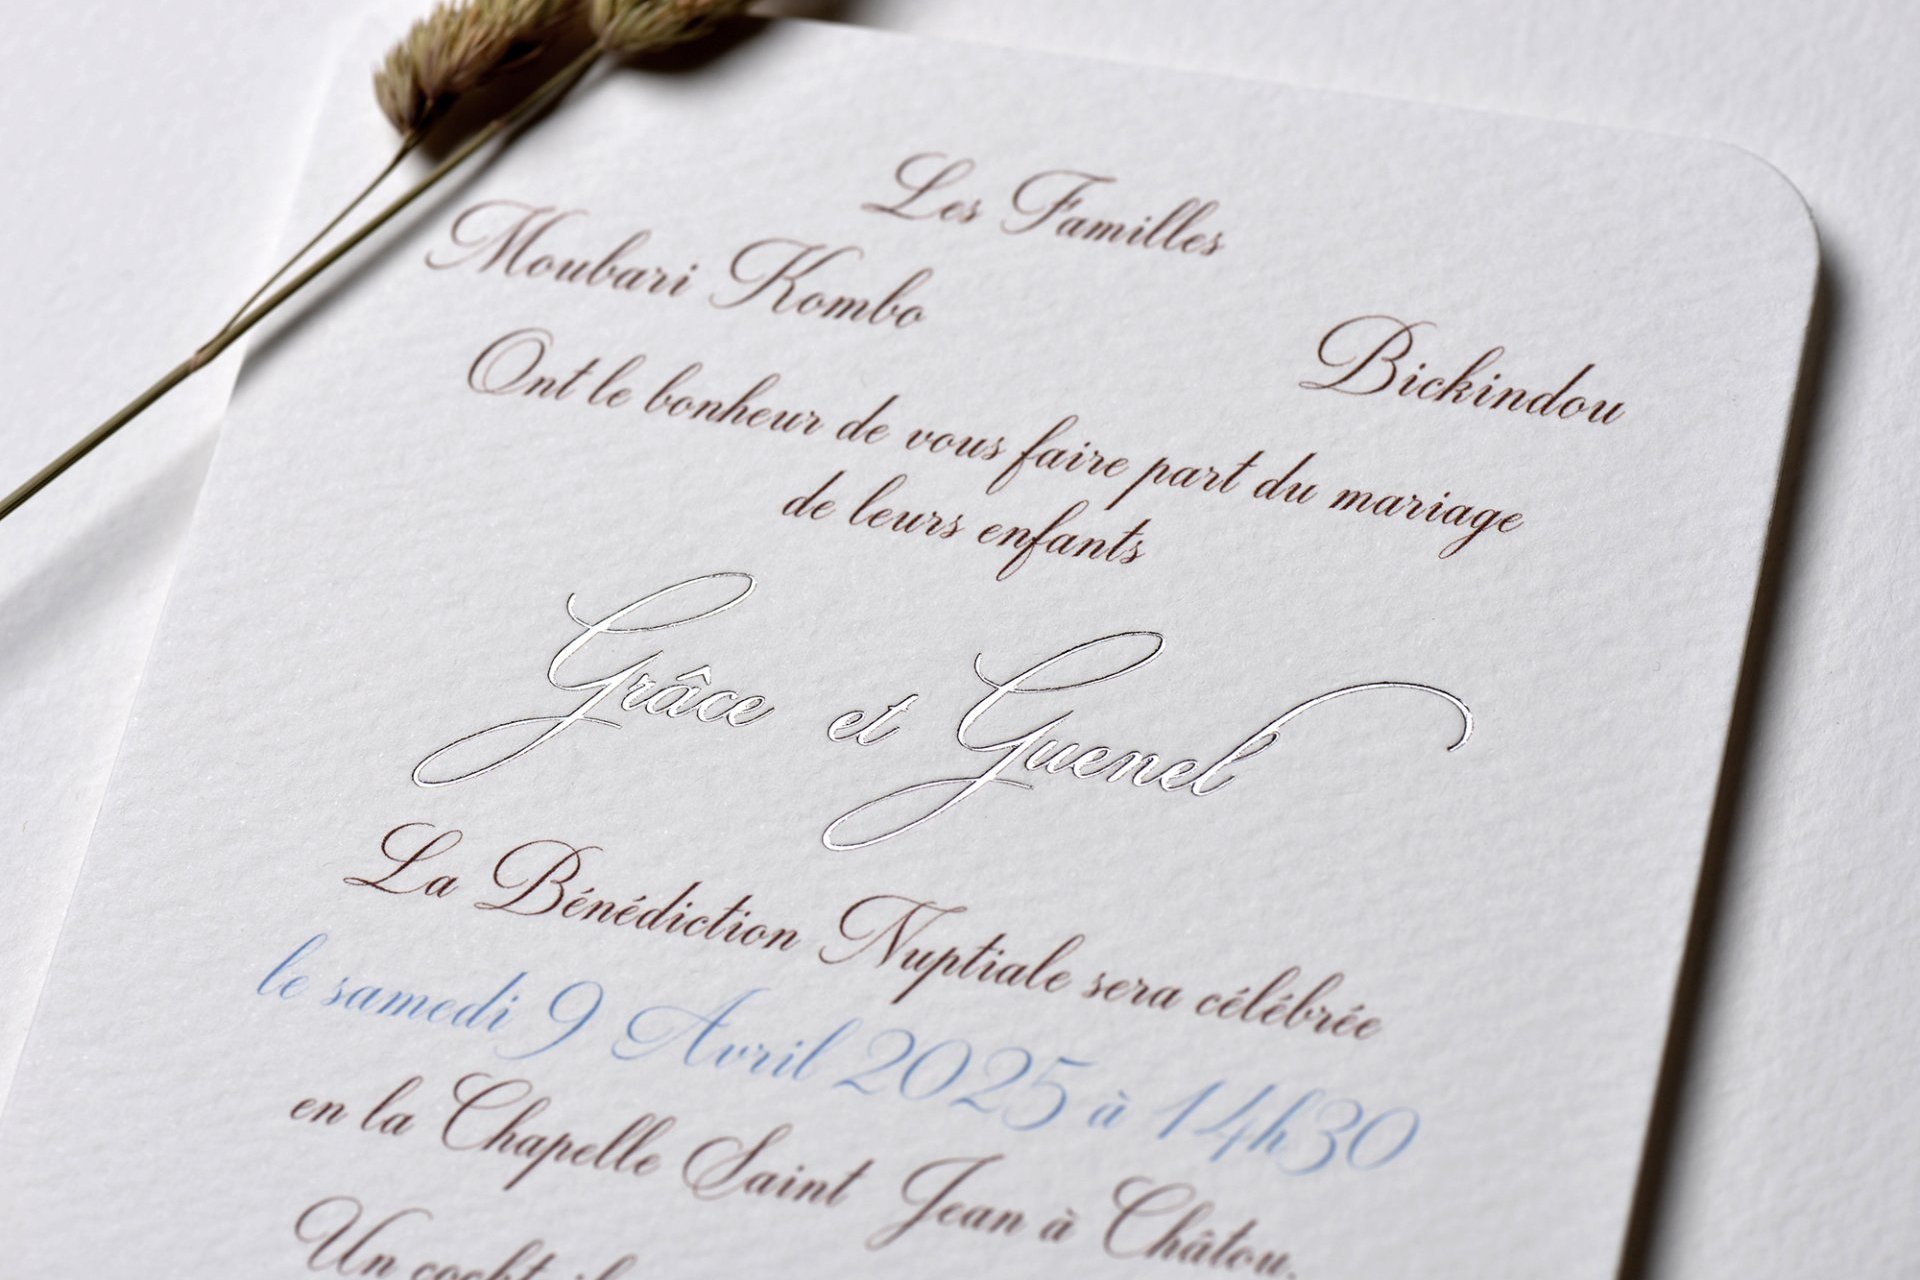 Les Familles
Moubari Kombo
Bickindou
Ont le bonheur de vous faire part du mariage
de leurs enfants
Grâce et Guenel
La Bénédiction Nuptiale sera célébrée
le samedi 9 Avril 2025 à 14h30
en la Chapelle Saint Jean à Châtou.
Un cocktail